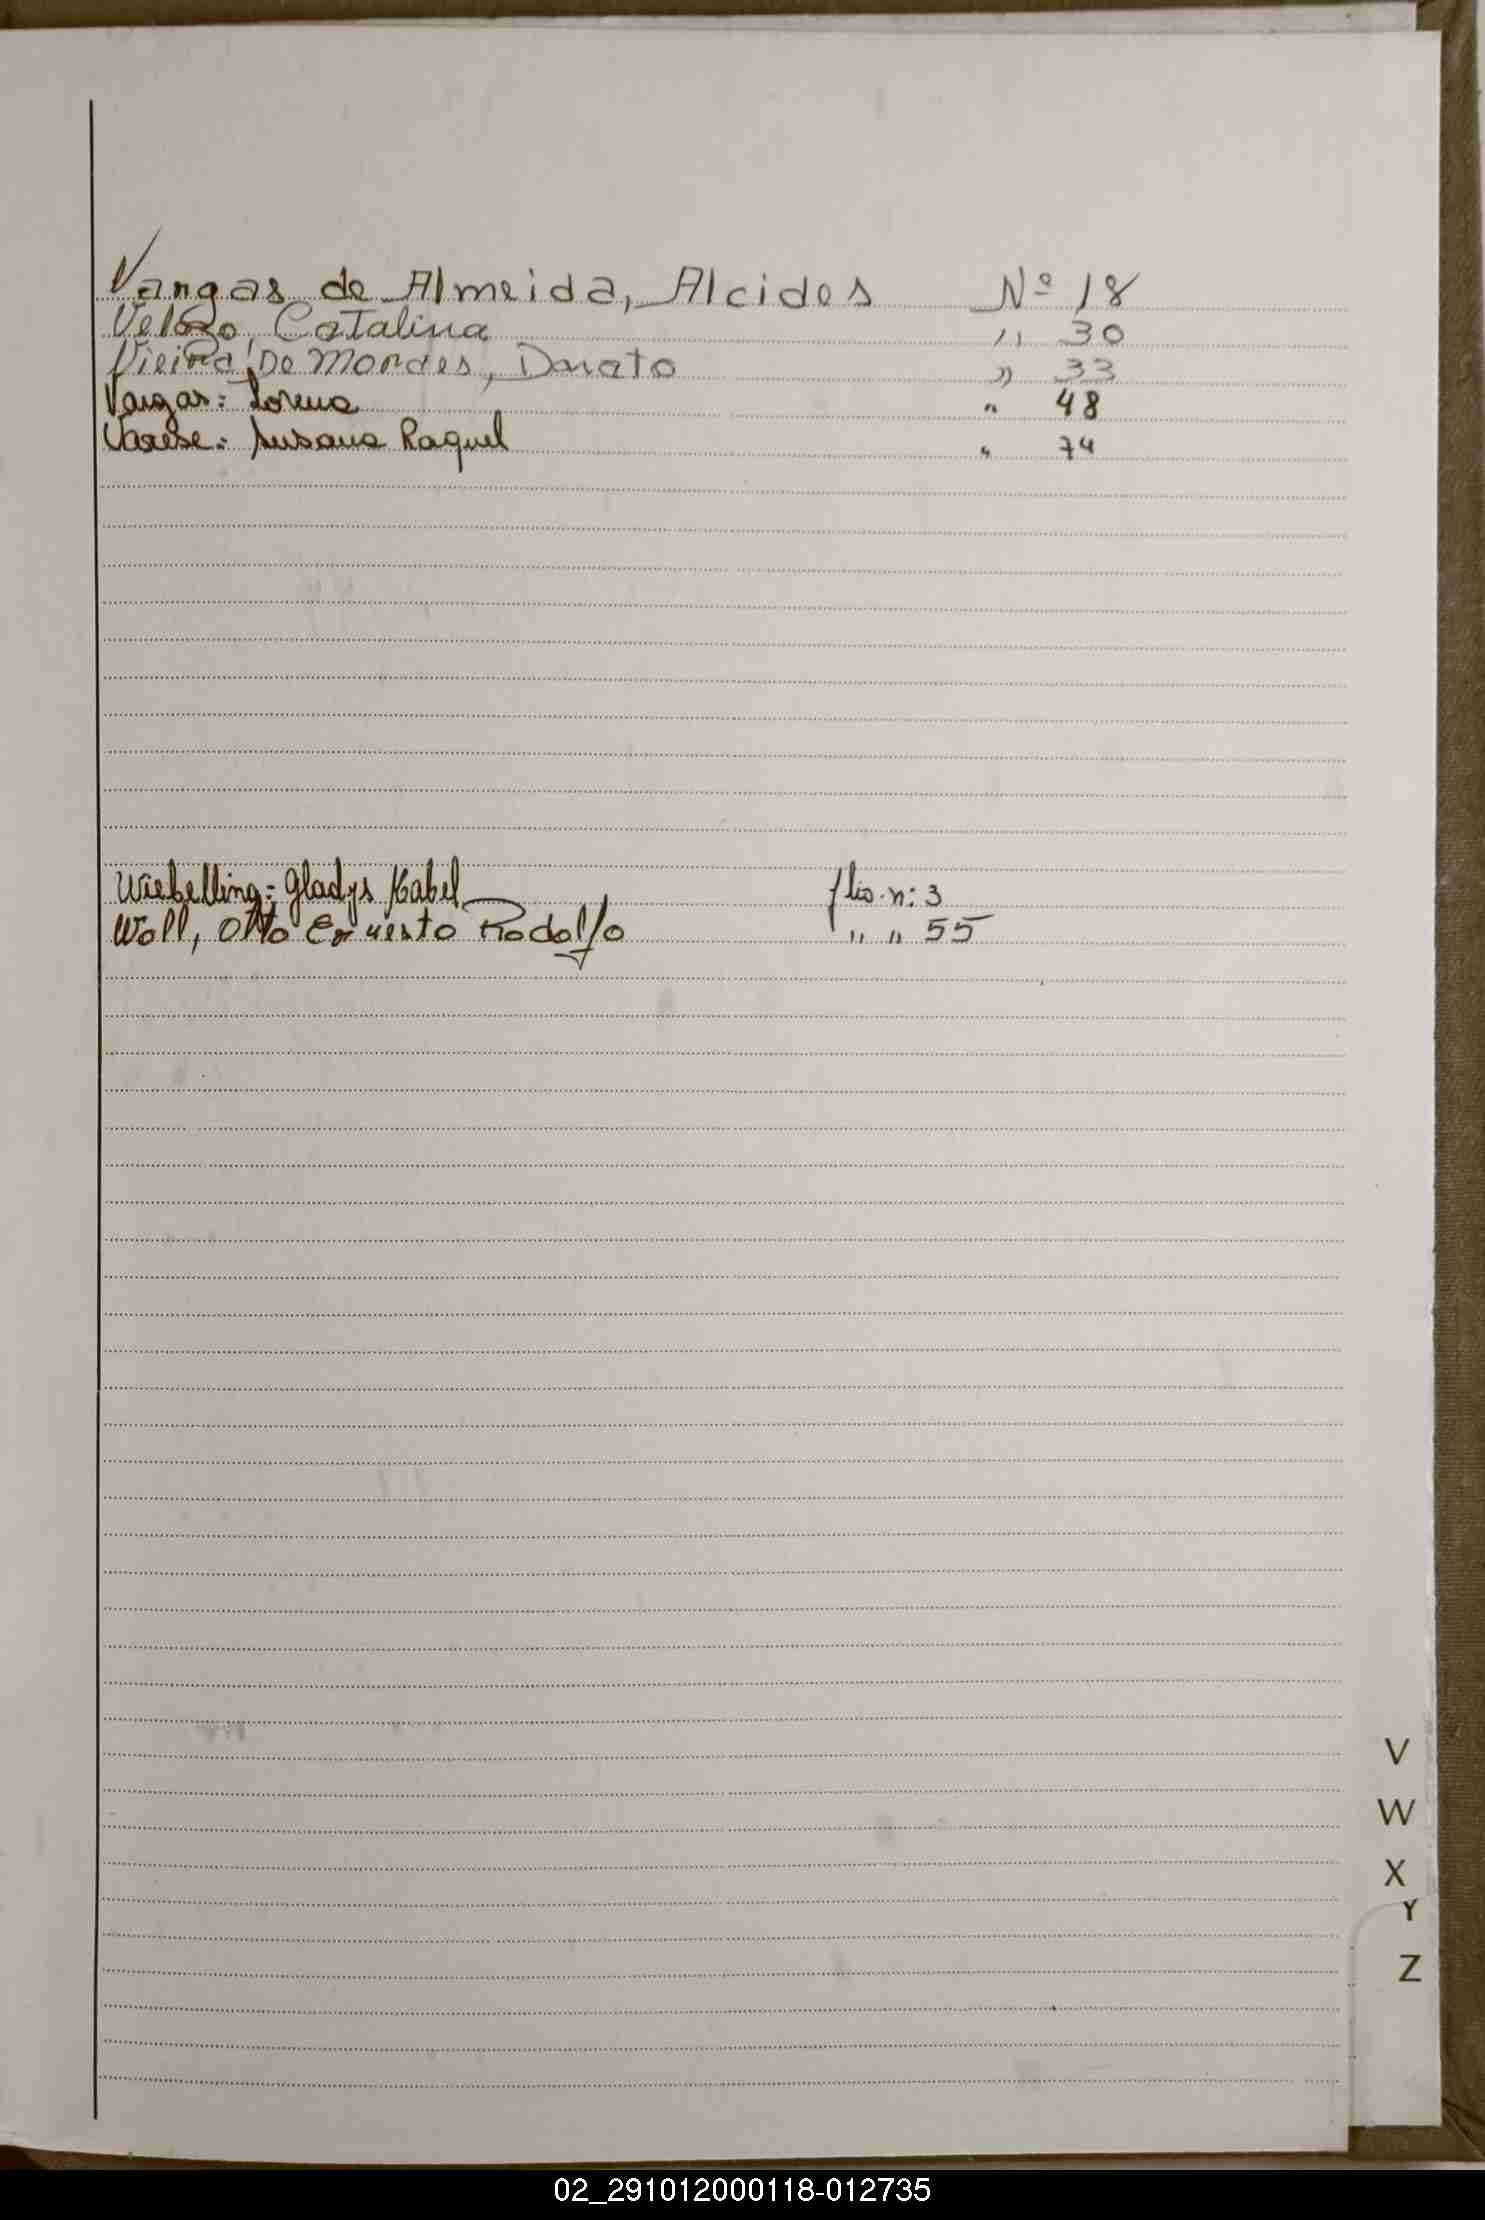 Vargas de Almeida, Alcides Nº 18
Velozo, Catalina " 30
Vieira De Mordes, Donato " 33
Vargas: Lorena " 48
Varese: Susana Raquel " 74
Wiebelling: Gladys Mabel flio. n: 3
Woll, Otto Ernesto Rodolfo " " 55
V
W
X
Y
Z
02_291012000118-012735